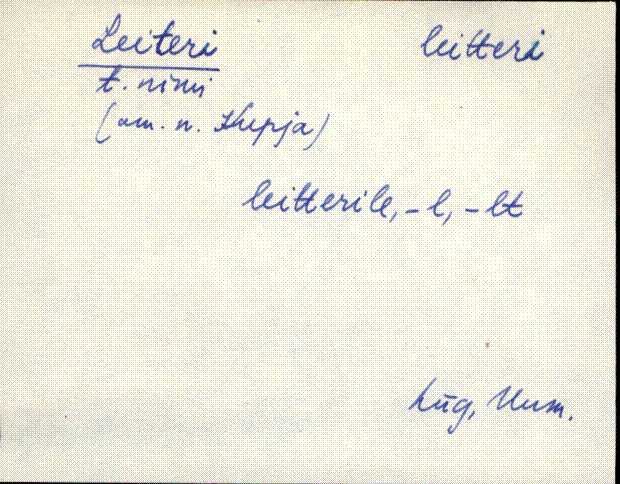 Leiteri leitteri
t. nimi
(am. n. Kupja)
leitterile, -l, -lt
Lüg, Uum.